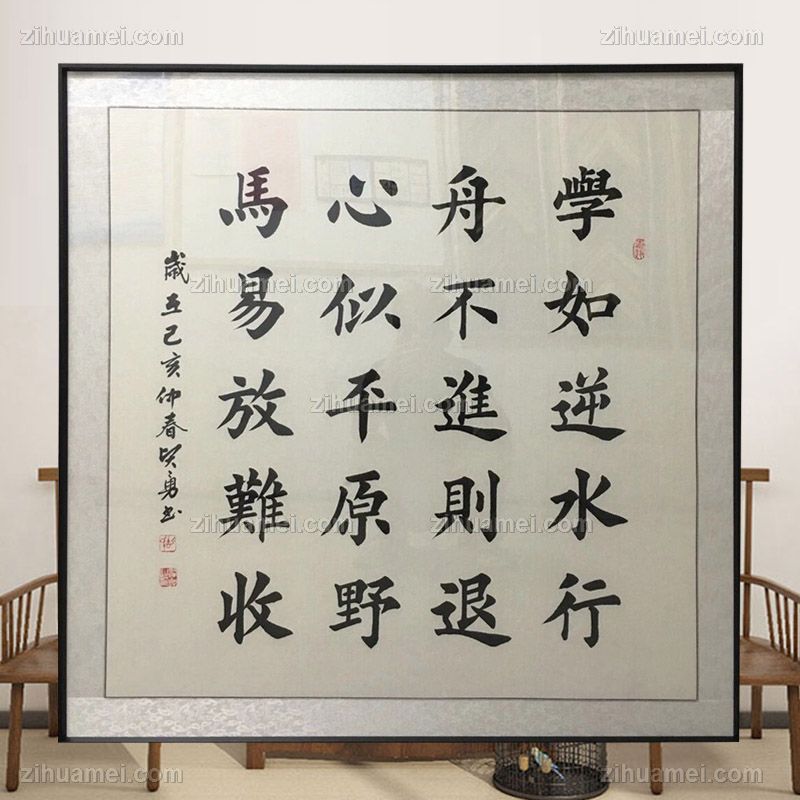 zihuamei.com zihuamei.com
學如逆水行
舟不進則退
心似平原野
馬易放難收
歲在己亥仲春勇书
zihuamei.com
zihuamei.com zihuamei.com
zihuamei.com
zihuamei.com zihuamei.com
zihuamei.com
zihuamei.com zihuamei.com